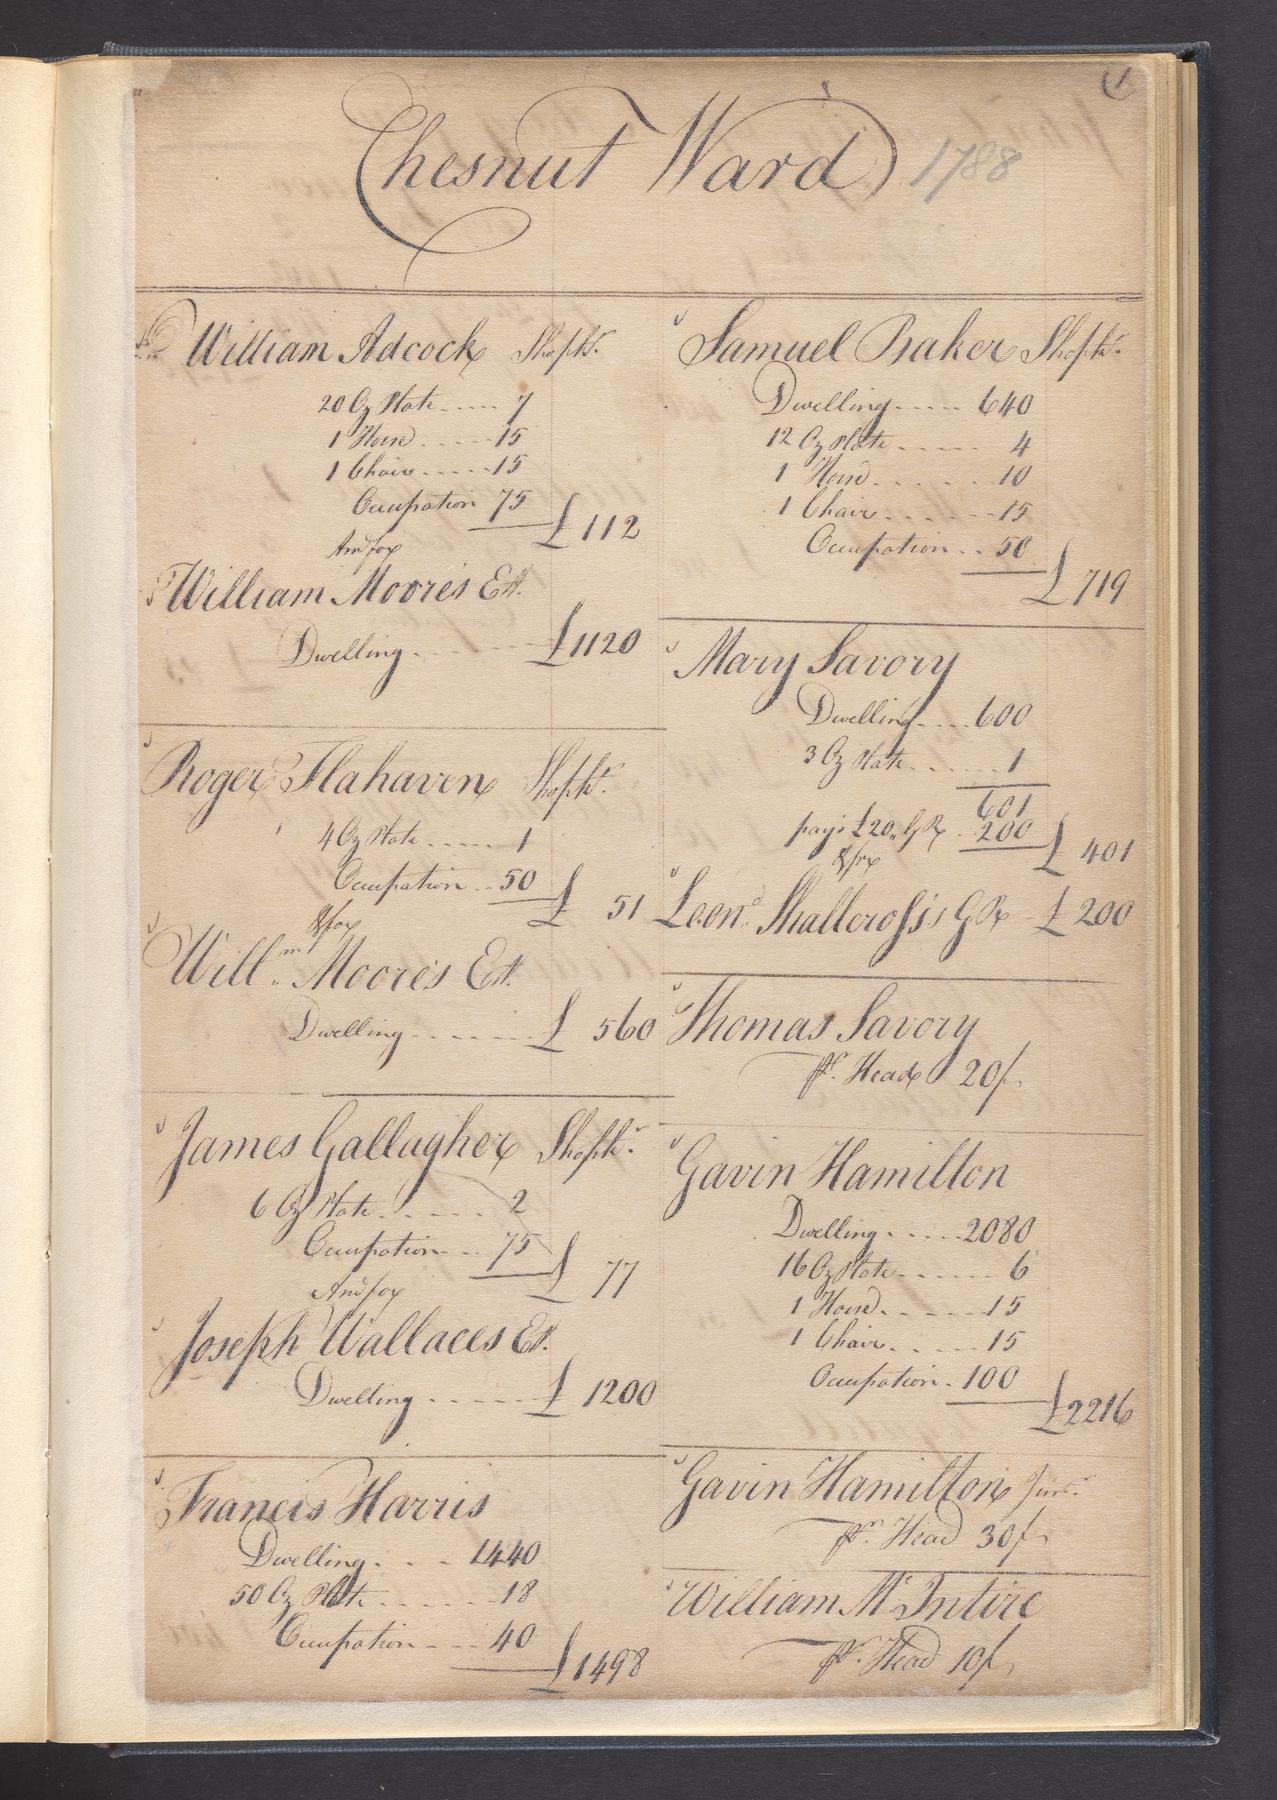 1
Chesnut Ward 1788
William Adcock Shopkr.
20 Oz Plate ..... 7
1 Horse ..... 15
1 Chair ..... 15
Occupation 75
£112
And for
William Moore's Est.
Dwelling ..... £1120
Roger Flahaven Shopkr.
4 Oz Plate ..... 1
Occupation .. 50
£ 51
& for
Willm. Moore's Est.
Dwelling ..... £ 560
James Gallagher Shopkr.
6 Oz Plate ..... 2
Occupation ... 75
£ 77
And for
Joseph Wallaces Est.
Dwelling ..... £ 1200
Francis Harris
Dwelling ... 1440
50 Oz Plate ..... 18
Occupation ... 40
£1498
Samuel Baker Shopkr.
Dwelling ..... 640
12 Oz Plate ..... 4
1 Horse ..... 10
1 Chair ..... 15
Occupation .. 50
£719
Mary Savory
Dwelling .... 600
3 Oz Plate ..... 1
601
pays £20 „ G R .. 200
£ 401
& for
Leond. Shallcross's G R - £ 200
Thomas Savory
pr. Head 20/
Gavin Hamilton
Dwelling ..... 2080
16 Oz Plate ..... 6
1 Horse ..... 15
1 Chair ..... 15
Occupation . 100
£2216
Gavin Hamilton Junr.
pr. Head 30/
William Mc Intire
pr. Head 10/